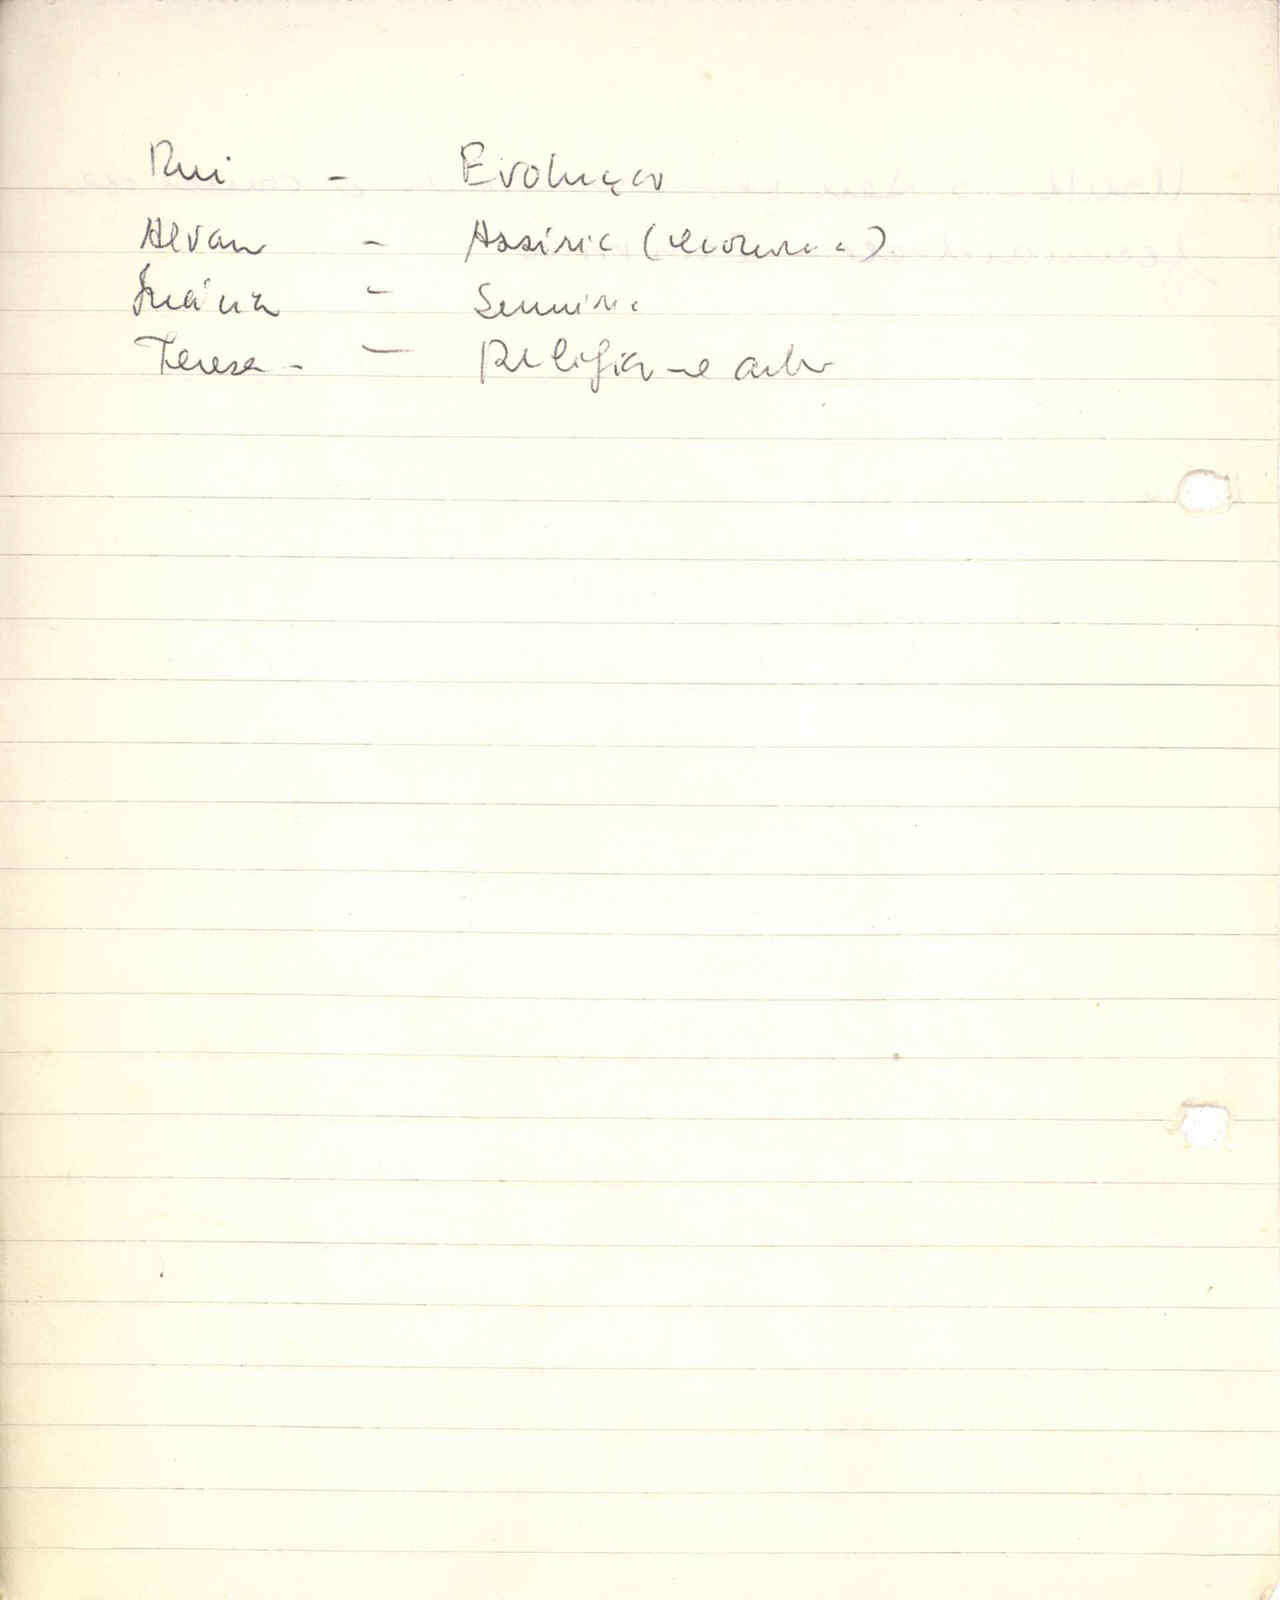 Rui - Evolução
Alvaro - Assíria (economia)
- Suméria
Teresa - - Religião e arte